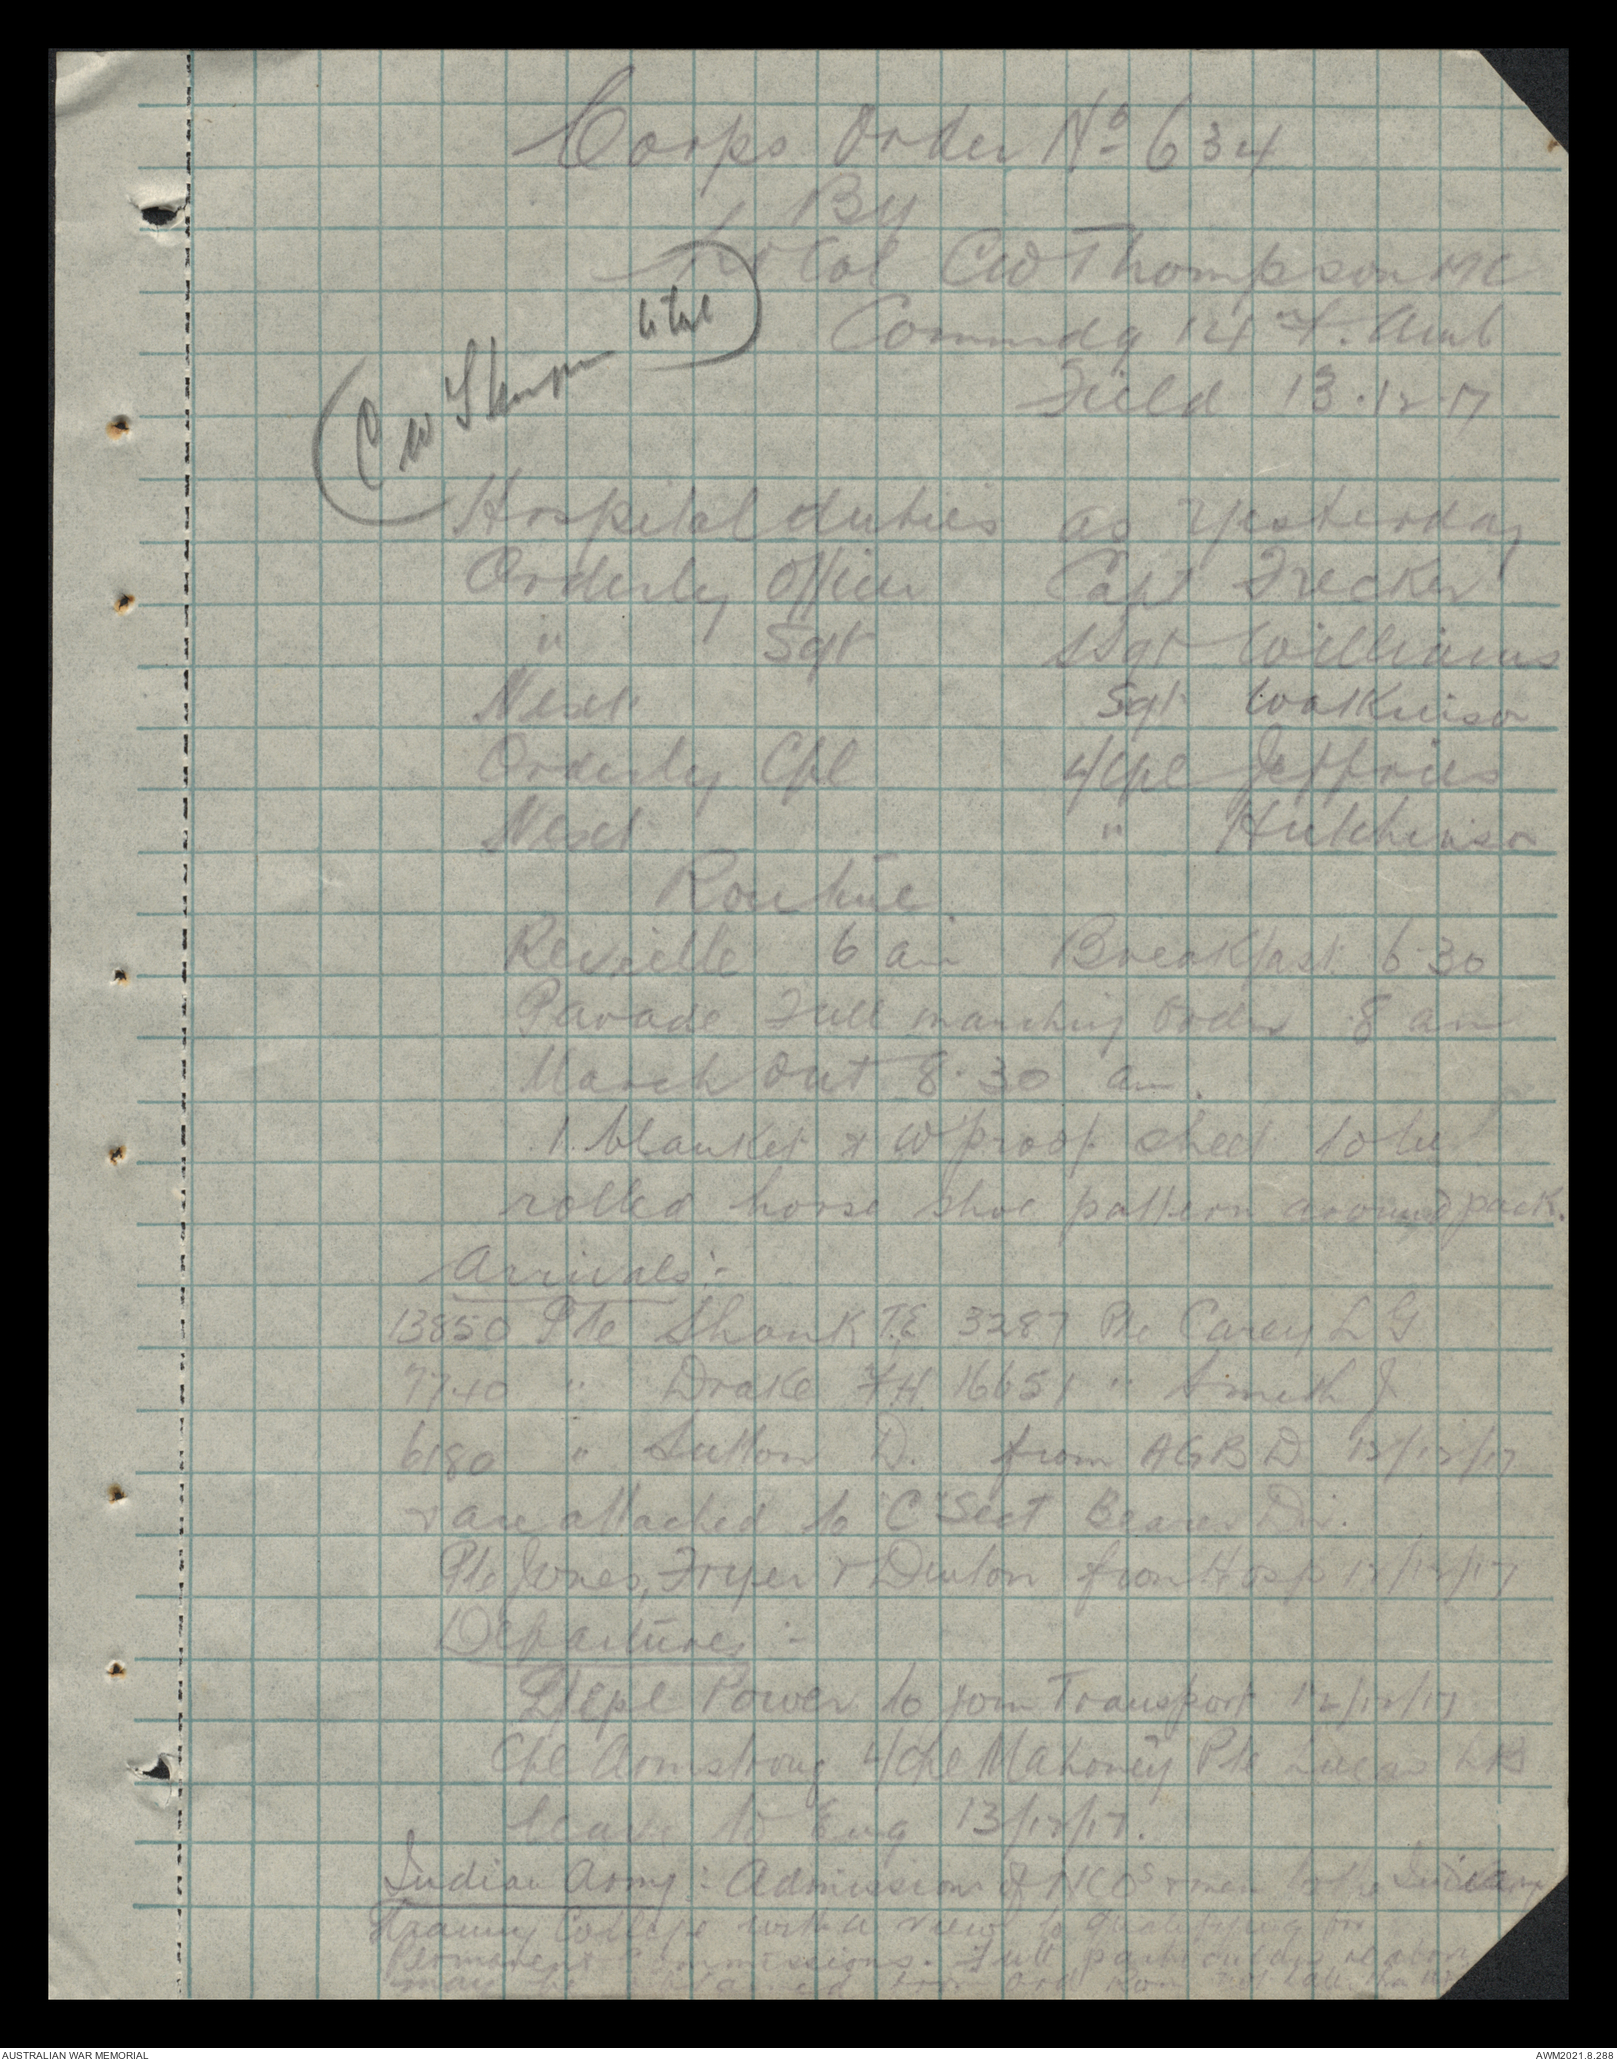 Corps Order No 634
By
Lt Col CW Thompson MC
Commdg 14 F. Amb
Field 13.12.17
(CW Thompson Lt Col)
Hospital duties as Yesterday
Orderly Officer Capt Trecker
" Sgt SSgt Williams
Next Sgt Watkinson
Orderly Cpl L/Cpl Jeffries
Next " Hutchinson
Routine
Reveille 6 am Breakfast 6.30
Parade Full marching order 8 am
March Out 8.30 am.
1 blanket & W proof sheet to be
rolled horse shoe pattern around pack.
Arrivals:-
13850 Pte Shank T.E 3287 Pte Carey L G
7740 " Drake F.H. 16651 " Smith J
6180 " Sutton D. from AGBD 12/12/17
& are attached to "C" Sect Bearer Div.
Pte Jones, Fryer & Dutton from Hosp 12/12/17
Departures :-
L/Cpl Power to join Transport 12/12/17
Cpl Armstrong L/Cpl Mahoney Pte Lucas LB
leave to Eng 13/12/17.
Indian Army: Admission of NCOs & men to the Indian
Training College with a view to qualifying for
Permanent Commissions. Full particulars
may be obtained from Ord Room not later than